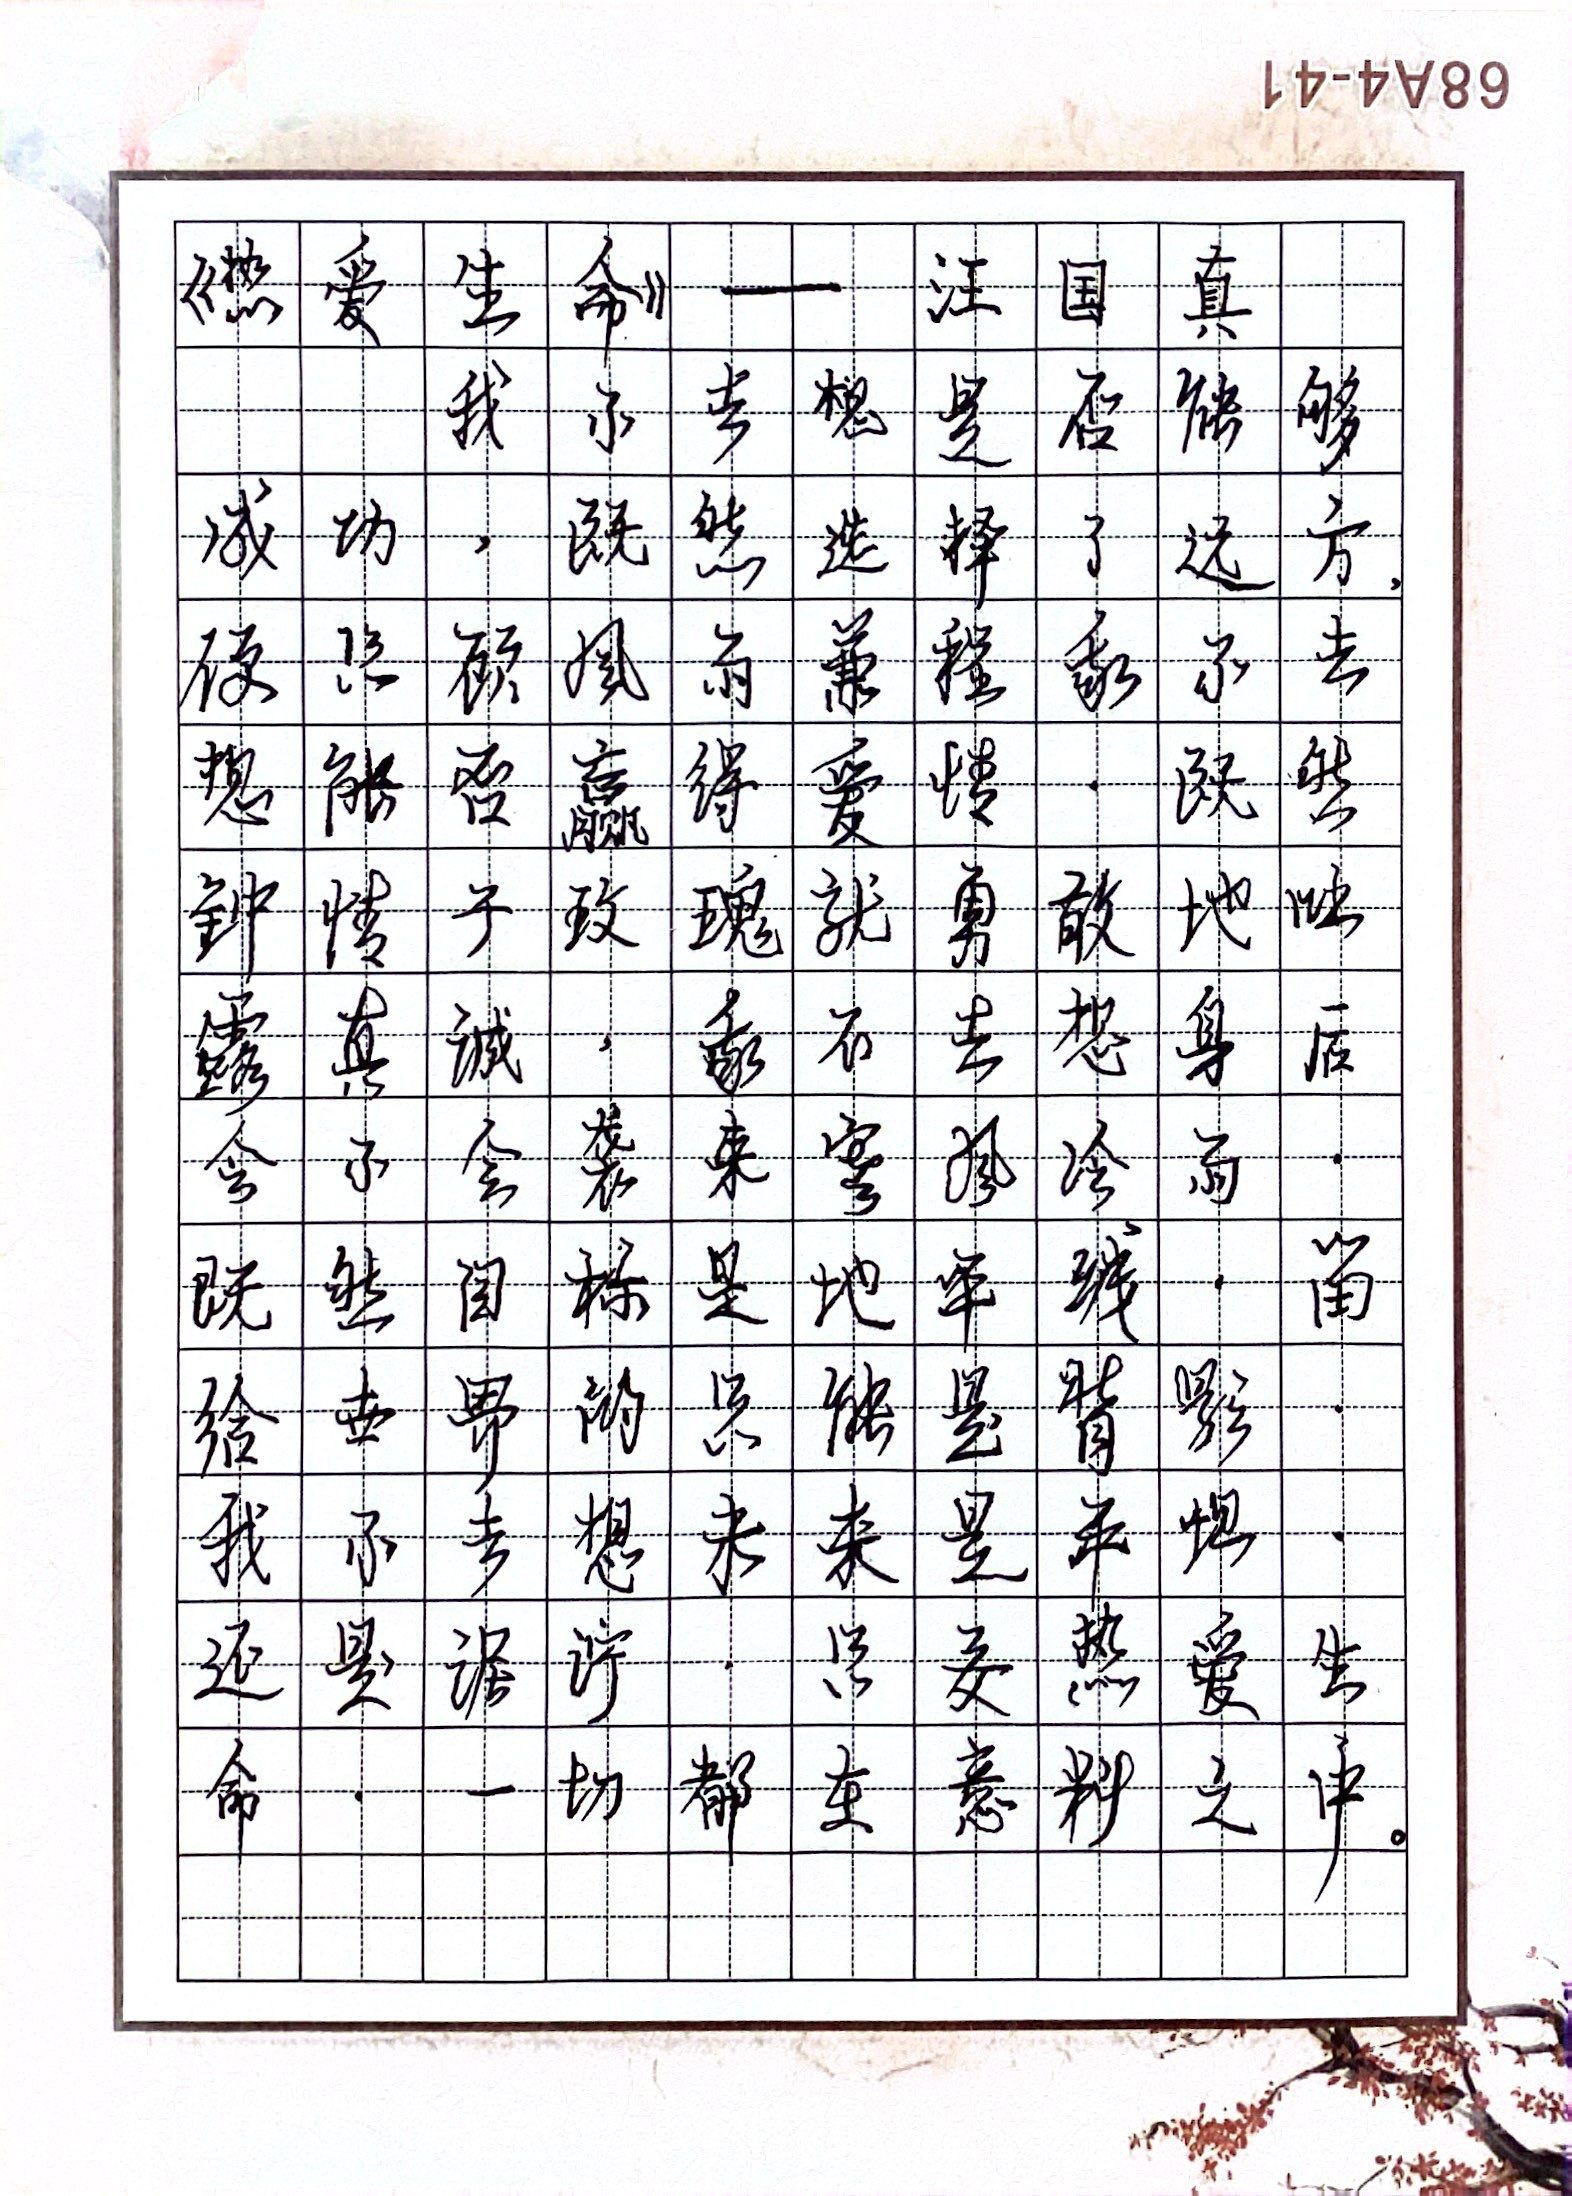 68A4-41
《热爱生命》——汪国真
我不去想是否能够
成功，既然选择了远方，
便只顾风雨兼程我不去
想能否赢得爱情，既然
钟情于玫瑰就勇敢地吐
露真诚，我不去想身后
会不会袭来寒风冷雨，
既然目标是地平线，留
给世界的只能是背影，
我不去想未来是平坦，
还是泥泞，只要热爱生
命，一切都在意料之中。